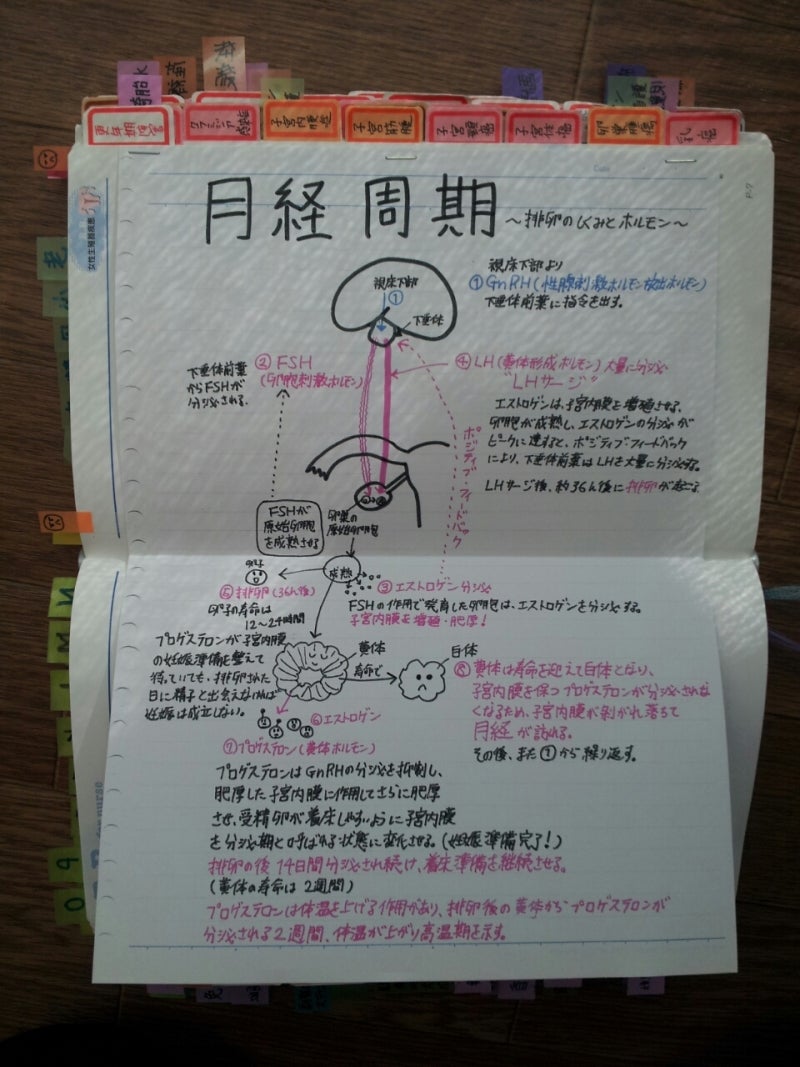 更年期障害
クラミジア感染症
子宮内膜症
子宮筋腫
子宮頸癌
子宮体癌
卵巣腫瘍
乳癌
女性生殖器疾患
P-7
月経周期
〜排卵のしくみとホルモン〜
視床下部
①
下垂体
視床下部より
①GnRH(性腺刺激ホルモン放出ホルモン)
下垂体前葉に指令を出す。
下垂体前葉
からFSHが
分泌される。
②FSH
(卵胞刺激ホルモン)
④LH(黄体形成ホルモン)大量に分泌
"LHサージ"
エストロゲンは、子宮内膜を増殖させる。
卵胞が成熟し、エストロゲンの分泌が
ピークに達すると、ポジティブフィードバック
により、下垂体前葉はLHを大量に分泌する。
LHサージ後、約36h後に排卵が起こる
ポジティブ・フィードバック
FSHが
原始卵胞
を成熟させる
卵巣の
原始卵胞
成熟
卵子
⑤排卵(36h後)
卵子の寿命は
12〜24時間
③エストロゲン分泌
FSHの作用で発育した卵胞は、エストロゲンを分泌する。
子宮内膜を増殖・肥厚!
プロゲステロンが子宮内膜
の妊娠準備を整えて
待っていても、排卵された
日に精子と出会えなければ
妊娠は成立しない。
黄体
寿命で
白体
⑧黄体は寿命を迎えて白体となり、
子宮内膜を保つプロゲステロンが分泌されな
くなるため、子宮内膜が剥がれ落ちて
月経が訪れる。
その後、また①から繰り返す。
⑥エストロゲン
⑦プロゲステロン(黄体ホルモン)
プロゲステロンはGnRHの分泌を抑制し、
肥厚した子宮内膜に作用してさらに肥厚
させ、受精卵が着床しやすいように子宮内膜
を分泌期と呼ばれる状態に変化させる。(妊娠準備完了!)
排卵の後14日間分泌され続け、着床準備を継続させる。
(黄体の寿命は2週間)
プロゲステロンは体温を上げる作用があり、排卵後の黄体からプロゲステロンが
分泌される2週間、体温が上がり高温期を示す。